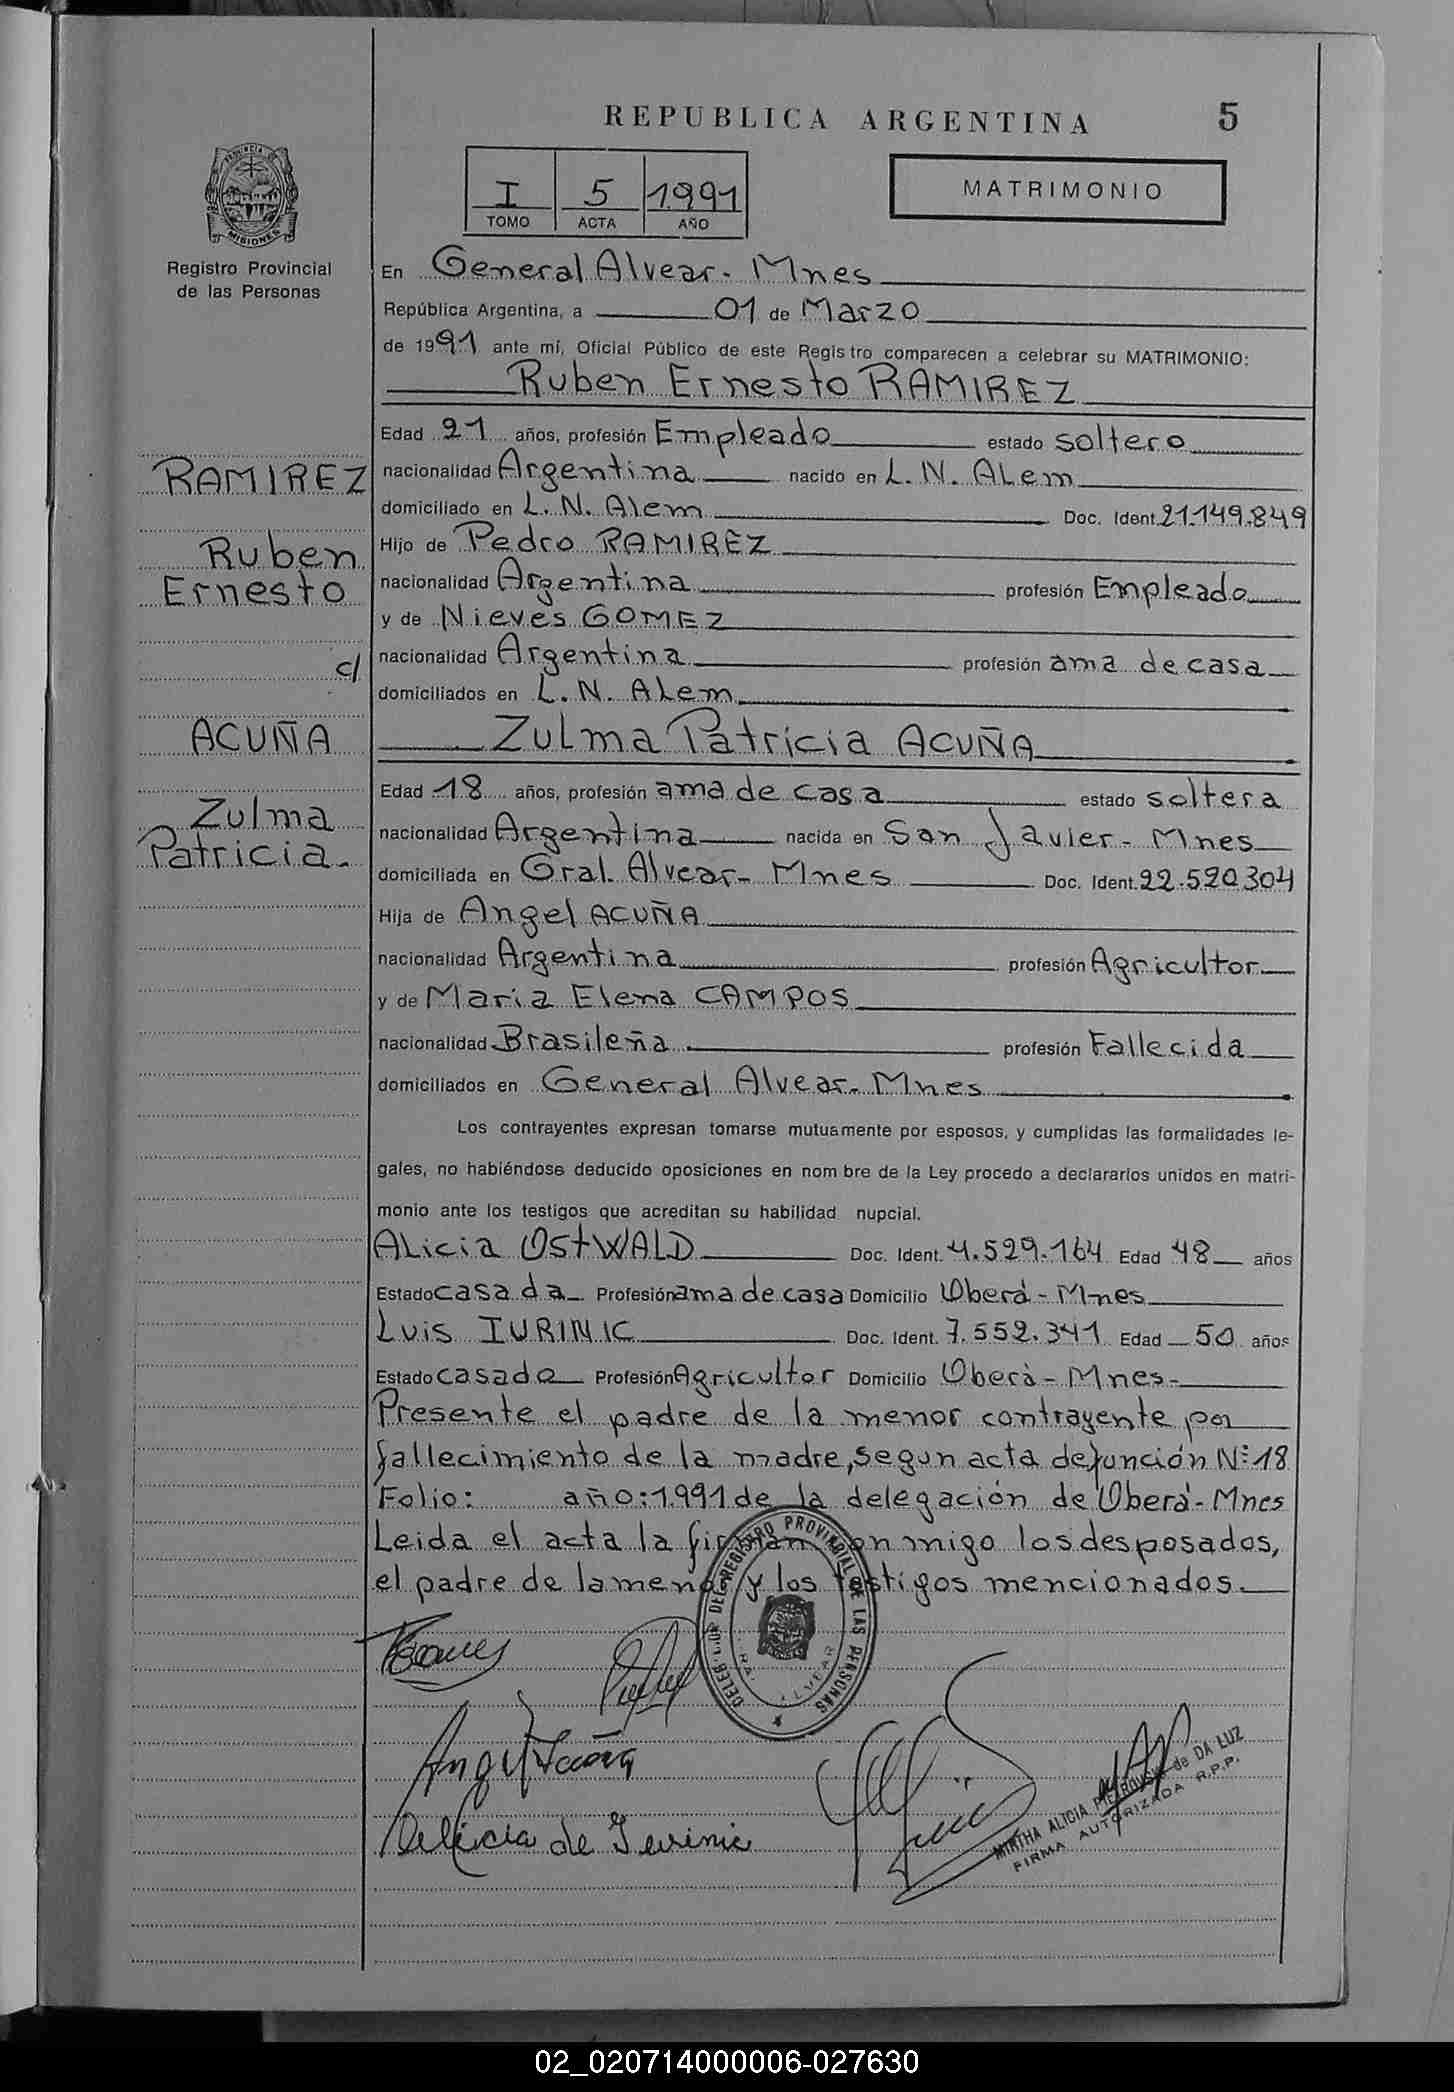 REPUBLICA ARGENTINA 5
I 5 1991
TOMO ACTA AÑO
MATRIMONIO
PROVINCIA DE
MISIONES
Registro Provincial
de las Personas
RAMIREZ
Ruben
Ernesto
c/
ACUÑA
Zulma
Patricia.
En General Alvear- Mnes
República Argentina, a 01 de Marzo
de 1991 ante mí, Oficial Público de este Registro comparecen a celebrar su MATRIMONIO:
Ruben Ernesto RAMIREZ
Edad 21 años, profesión Empleado estado soltero
nacionalidad Argentina nacido en L. N. ALem
domiciliado en L. N. Alem Doc. Ident. 21.149.849
Hijo de Pedro RAMIREZ
nacionalidad Argentina profesión Empleado
y de Nieves GOMEZ
nacionalidad Argentina profesión ama de casa
domiciliados en L. N. ALem
Zulma Patricia ACUÑA
Edad 18 años, profesión ama de casa estado soltera
nacionalidad Argentina nacida en San Javier- Mnes
domiciliada en Gral. Alvear- Mnes Doc. Ident. 22.520.304
Hija de Angel ACUÑA
nacionalidad Argentina profesión Agricultor
y de Maria Elena CAMPOS
nacionalidad Brasileña profesión Fallecida
domiciliados en General Alvear- Mnes
Los contrayentes expresan tomarse mutuamente por esposos, y cumplidas las formalidades le-
gales, no habiéndose deducido oposiciones en nombre de la Ley procedo a declararlos unidos en matri-
monio ante los testigos que acreditan su habilidad nupcial.
ALicia OStWALD Doc. Ident. 4.529.164 Edad 48 años
Estado casada Profesión ama de casa Domicilio Oberá - Mnes
Luis IURINIC Doc. Ident. 7.552.341 Edad 50 años
Estado casado Profesión Agricultor Domicilio Oberà - Mnes-
Presente el padre de la menor contrayente por
fallecimiento de la madre, segun acta defunción Nº 18
Folio: año: 1.991 de la delegación de Oberá- Mnes
Leida el acta la firman conmigo los desposados,
el padre de la menor y los testigos mencionados.
DEL REGISTRO PROVINCIAL DE LAS PERSONAS
ALVEAR
Angel Acuña
Alicia de Iurinic
MIRTHA ALICIA de DA LUZ
FIRMA AUTORIZADA R.P.P.
02_020714000006-027630